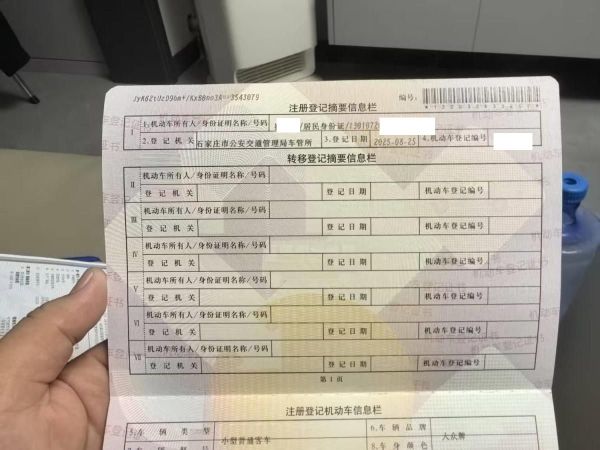 注册登记摘要信息栏
编号:
I 1.机动车所有人/身份证明名称/号码 /居民身份证/1301072
2.登记机关 石家庄市公安交通管理局车管所 3.登记日期 2025-08-25 4.机动车登记编号
转移登记摘要信息栏
II 机动车所有人/身份证明名称/号码
登记机关 登记日期 机动车登记编号
III 机动车所有人/身份证明名称/号码
登记机关 登记日期 机动车登记编号
IV 机动车所有人/身份证明名称/号码
登记机关 登记日期 机动车登记编号
V 机动车所有人/身份证明名称/号码
登记机关 登记日期 机动车登记编号
VI 机动车所有人/身份证明名称/号码
登记机关 登记日期 机动车登记编号
VII 机动车所有人/身份证明名称/号码
登记机关 登记日期 机动车登记编号
第1页
注册登记机动车信息栏
5.车辆类型 小型普通客车 6.车辆品牌 大众牌
8.车身颜色